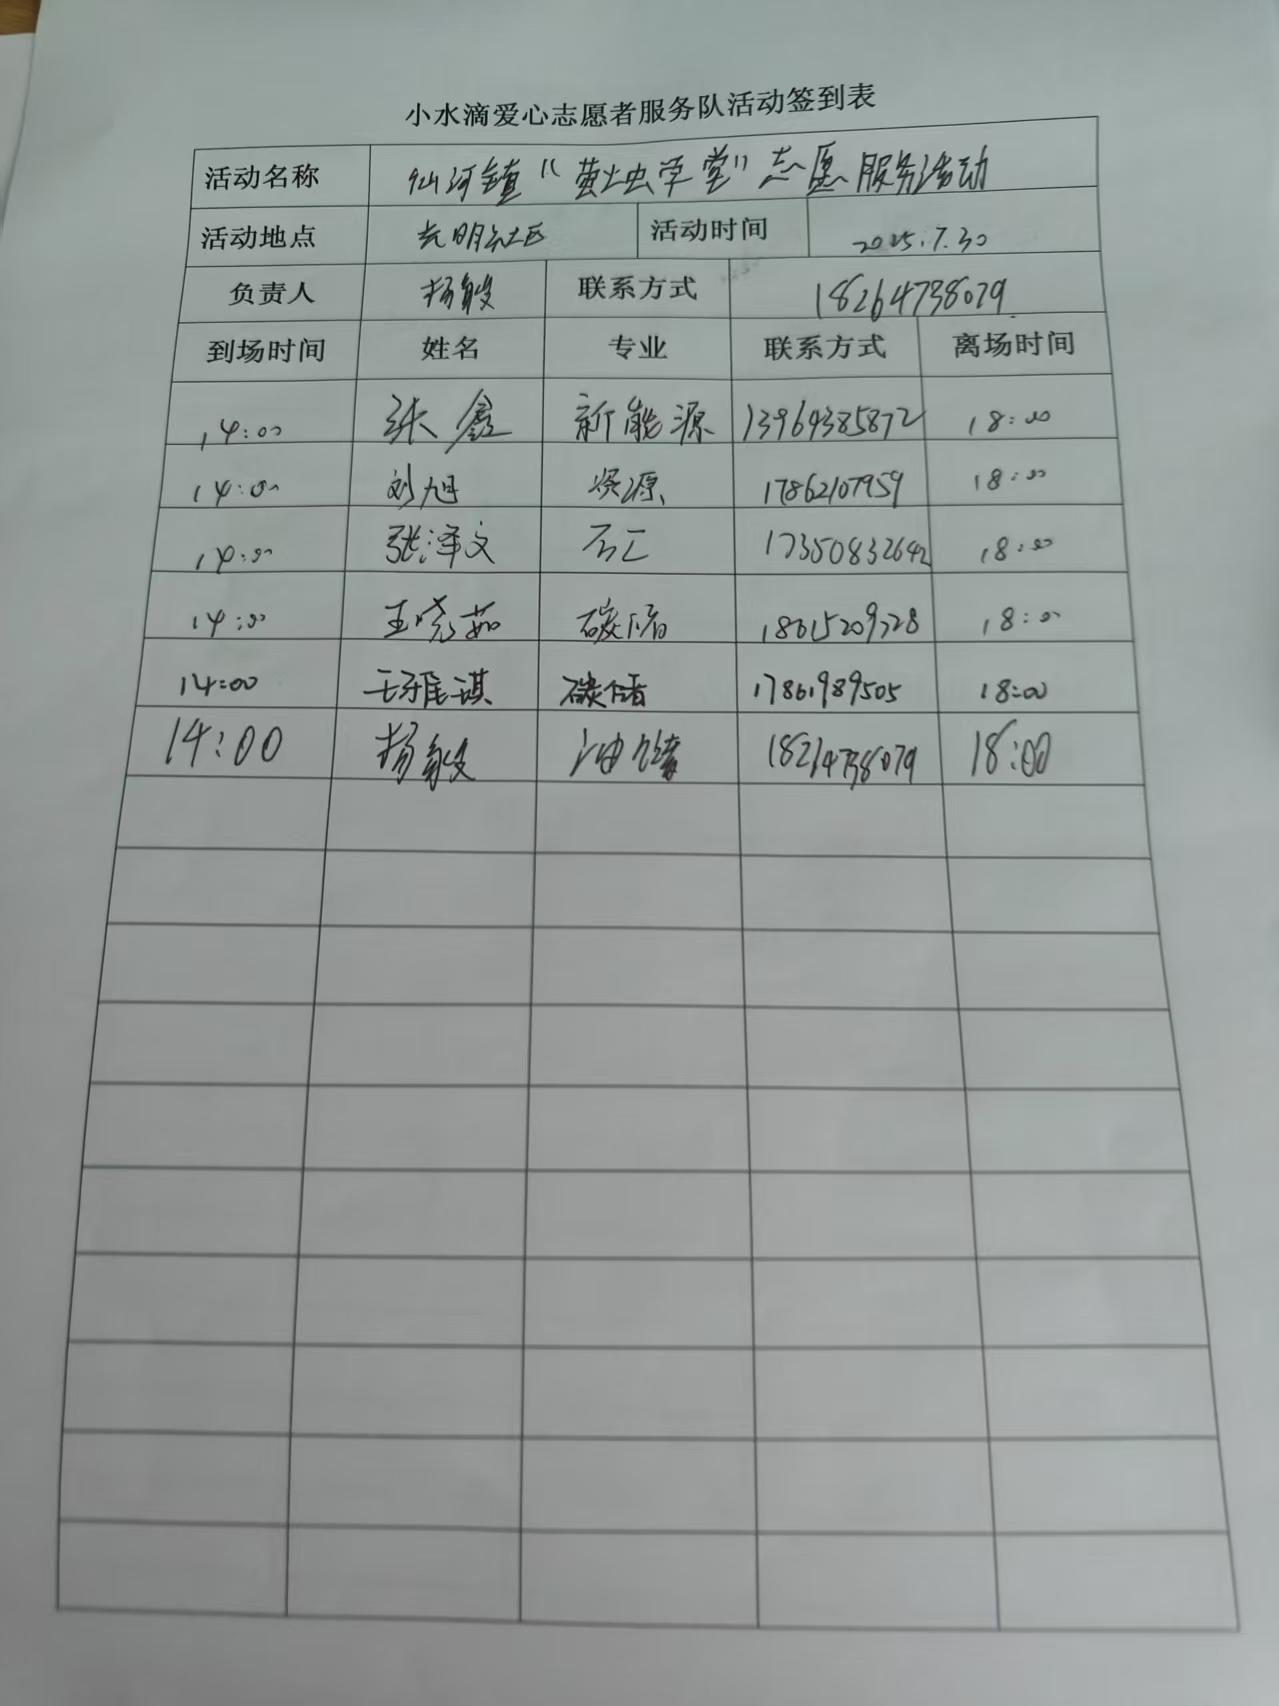 小水滴爱心志愿者服务队活动签到表
活动名称 仙河镇“萤火虫学堂”志愿服务活动
活动地点 光明社区 活动时间 2025.7.30
负责人 杨毅 联系方式 18264738079
到场时间 姓名 专业 联系方式 离场时间
14:00 张鑫 新能源 13969385872 18:00
14:00 刘旭 资源 17862107959 18:00
14:00 张泽文 石工 17350832642 18:00
14:00 王晓茹 碳储 18615209728 18:00
14:00 王雅琪 碳储 17861989505 18:00
14:00 杨毅 油储 18264738079 18:00